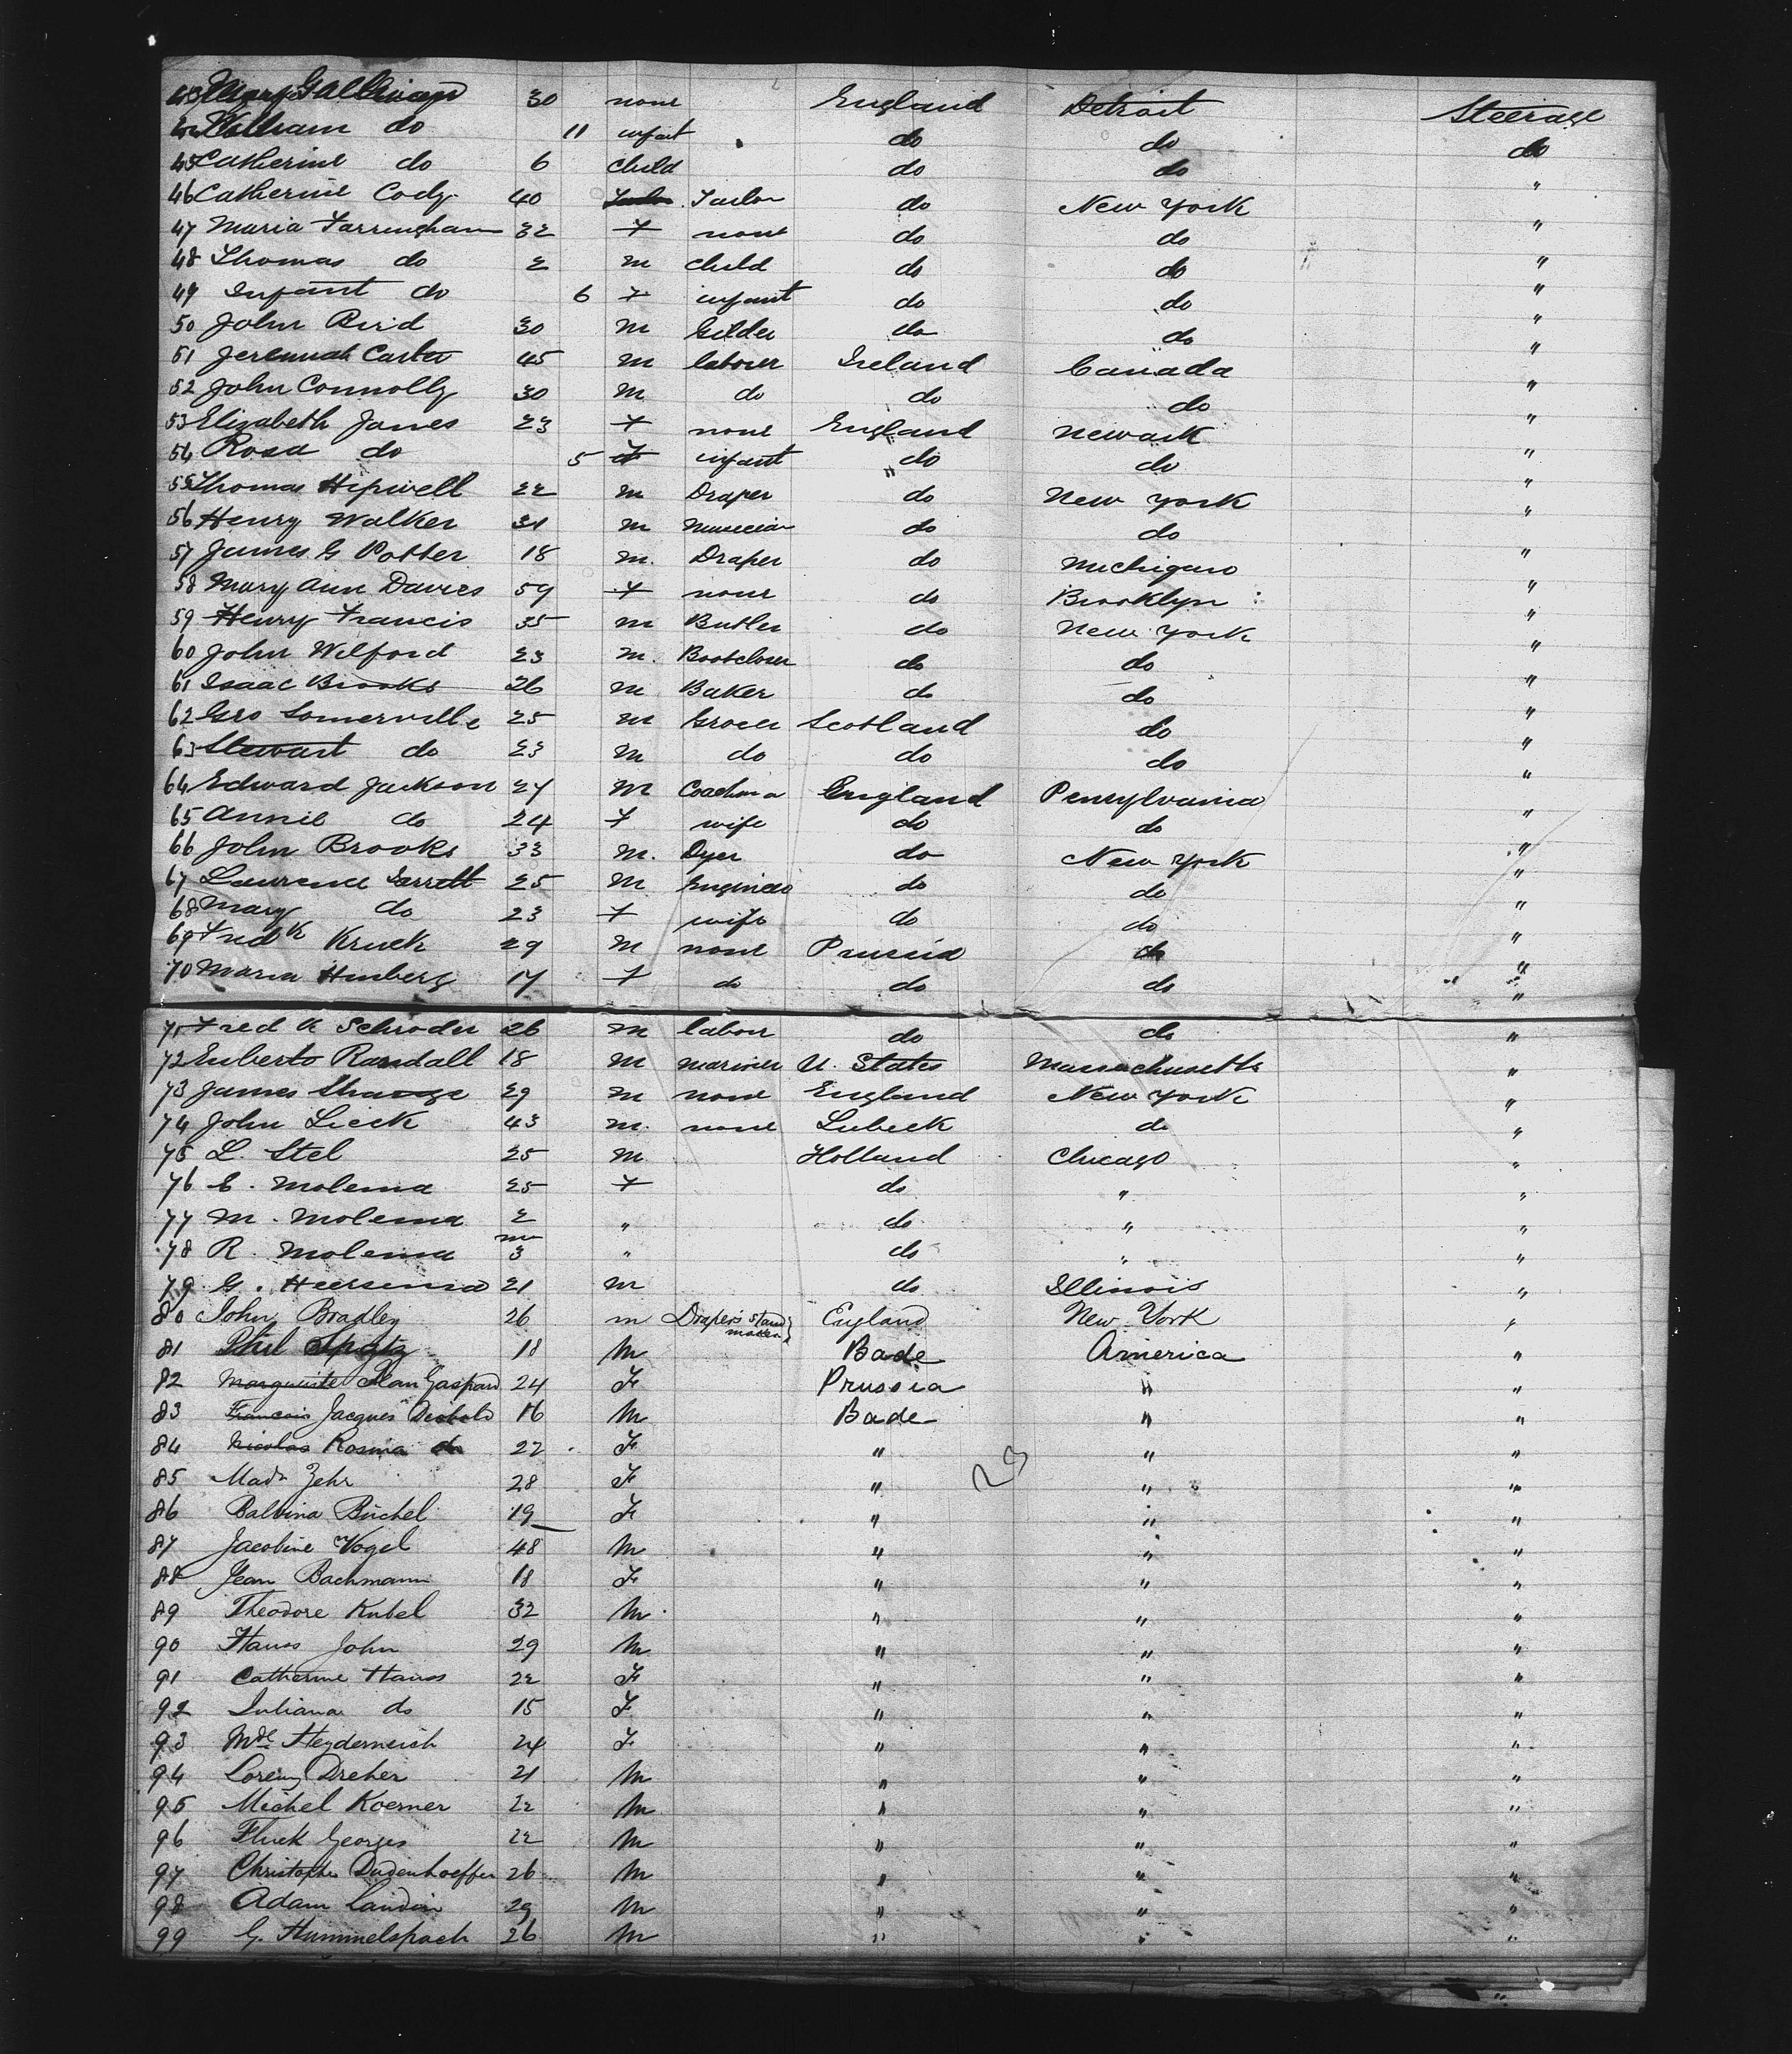 43 Mary Gallivan 30 none England Detroit Steerage
44 William do 11 infant do do do
45 Catherine do 6 child do do "
46 Catherine Cody 40 Tailor do New York "
47 Maria Farringham 32 F none do do "
48 Thomas do 2 m child do do "
49 Infant do 6 F infant do do "
50 John Bird 30 m Gilder do do "
51 Jeremiah Carter 45 m laborer Ireland Canada "
52 John Connolly 30 m do do do "
53 Elizabeth Jones 23 F none England Newark "
54 Rosa do 5 F infant do do "
55 Thomas Hipwell 22 m Draper do New York "
56 Henry Walker 31 m Musician do do "
57 James G Potter 18 m. Draper do Michigan "
58 Mary Ann Davies 59 F none do Brooklyn "
59 Henry Francis 35 m Butler do New York "
60 John Wilford 23 m. Bootcloser do do "
61 Isaac Brooks 26 m Baker do do "
62 Geo Somerville 25 m Grocer Scotland do "
63 Stewart do 23 m do do do "
64 Edward Jackson 27 m Coachma England Pensylvania "
65 Annie do 24 F wife do do "
66 John Brooks 33 m. Dyer do New York "
67 Lawrence Garrett 25 m Engineer do do "
68 Mary do 23 F wife do do "
69 Fredk Kruck 29 m none Prussia do "
70 Maria Hinberg 17 F do do do "
71 Fred K Schroder 26 m labour do do "
72 Euberto Randall 18 m mariner U. States Massachusetts "
73 James Shange 29 m none England New York "
74 John Lieck 43 m. none Lubeck do "
75 L. Stel 25 m Holland Chicago "
76 E. Molema 25 F do " "
77 M. Molema 2 " do " "
78 R. Molema m 3 " do " "
79 G. Heersema 21 m do Illinois "
80 John Bradley 26 m Drapers Stand maker England New York "
81 Phil Spatz 18 M Bade America "
82 Marguerite Jean Gaspard 24 F Prussia " "
83 Francois Jacques Diebold 16 M Bade " "
84 Nicolas Rosina do 22 F " " "
85 Madn Zehr 28 F " " "
86 Balvina Büchel 19 F " " "
87 Jacobine Vogel 48 M " " "
88 Jean Bachmann 18 F " " "
89 Theodore Kubel 32 M. " " "
90 Hauss John 29 M " " "
91 Catherine Hauss 22 F " " "
92 Juliana do 15 F " " "
93 Mde Heyderneich 24 F " " "
94 Lorenz Dreher 21 M " " "
95 Michel Koerner 22 M " " "
96 Fluck Georges 22 M " " "
97 Christophe Dudenhoeffer 26 M " " "
98 Adam Landin 29 M " " "
99 G. Hummelspach 26 M " " "